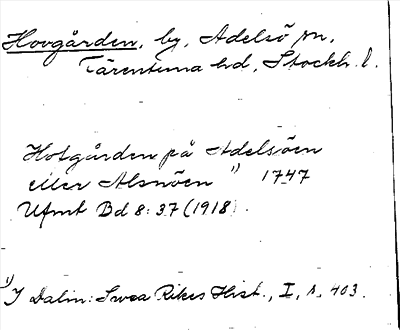 Hovgården, by, Adelsö sn,
Färentuna hd, Stockh. l.
Hofgården på Adelsöen
eller Alsnöen ¹) 1747
Ufmt Bd 8:37 (1918).
¹) I Dalin: Svea Rikes Hist., I, s. 403.